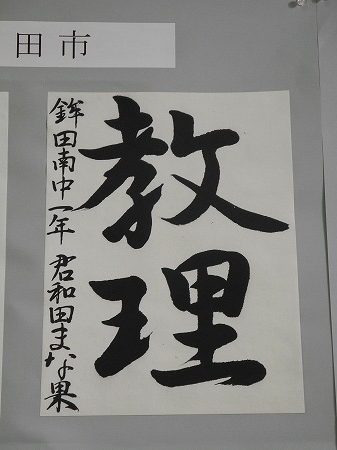 田市
教理
鉾田南中一年 君和田まな果